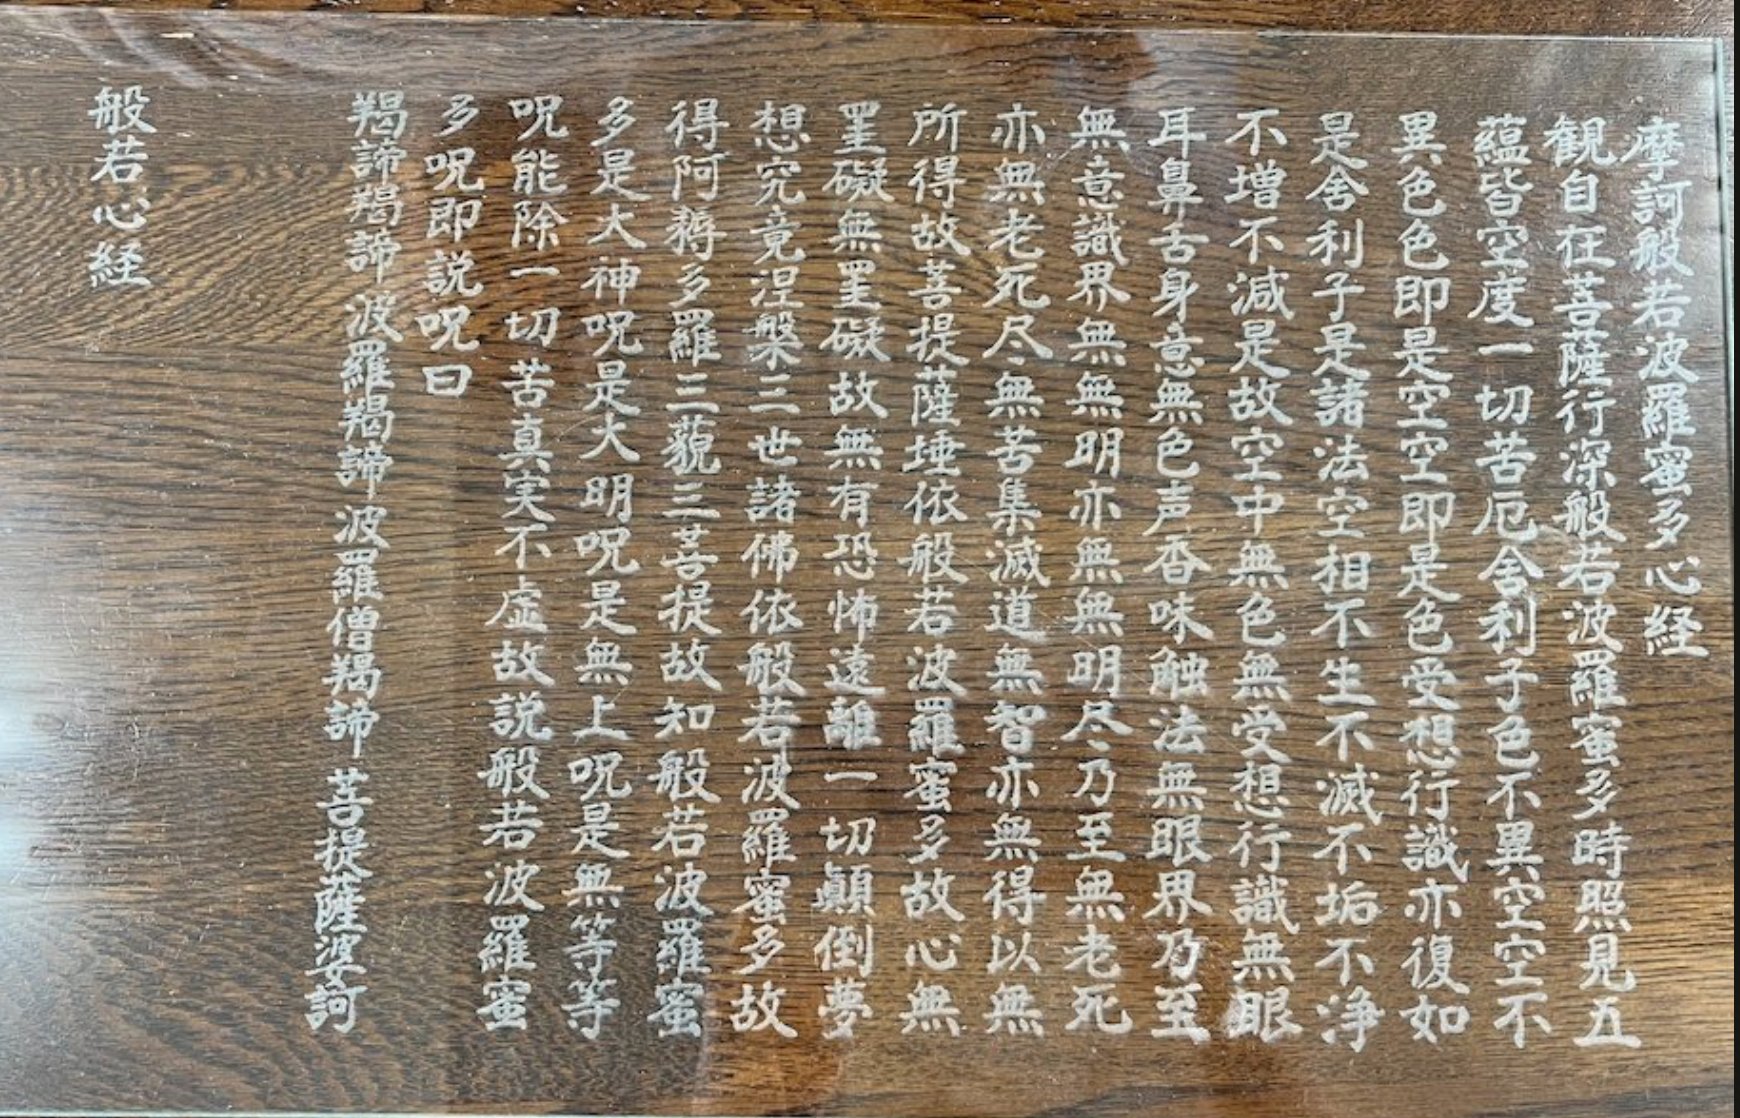 摩訶般若波羅蜜多心経
観自在菩薩行深般若波羅蜜多時照見五
蘊皆空度一切苦厄舎利子色不異空空不
異色色即是空空即是色受想行識亦復如
是舎利子是諸法空相不生不滅不垢不浄
不増不減是故空中無色無受想行識無眼
耳鼻舌身意無色声香味触法無眼界乃至
無意識界無無明亦無無明尽乃至無老死
亦無老死尽無苦集滅道無智亦無得以無
所得故菩提薩埵依般若波羅蜜多故心無
罣礙無罣礙故無有恐怖遠離一切顛倒夢
想究竟涅槃三世諸佛依般若波羅蜜多故
得阿耨多羅三藐三菩提故知般若波羅蜜
多是大神呪是大明呪是無上呪是無等等
呪能除一切苦真実不虚故説般若波羅蜜
多呪即説呪曰
羯諦羯諦波羅羯諦波羅僧羯諦菩提薩婆訶
般若心経